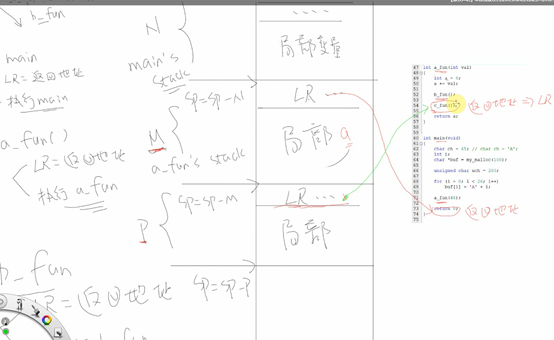 b_fun
main
LR=返回地址
执行main
a_fun()
LR=返回地址
执行a_fun
b_fun
LR=返回地址
N
main's
stack
SP=SP-N
M
a_fun's stack
SP=SP-M
P
SP=SP-P
....
局部变量
LR
局部 a
LR ...
局部
47 int a_fun(int val)
48 {
49 int a = 8;
50 a += val;
51
52 b_fun();
53
54 c_fun();
返回地址 => LR
55
56 return a;
57 }
60 int main(void)
61 {
62 char ch = 65; // char ch = 'A';
63 int i;
64 char *buf = my_malloc(100);
65
66 unsigned char uch = 200;
67
68 for (i = 0; i < 26; i++)
69 buf[i] = 'A' + i;
70
71 a_fun(46);
72
73 return 0;
返回地址
74 }
75